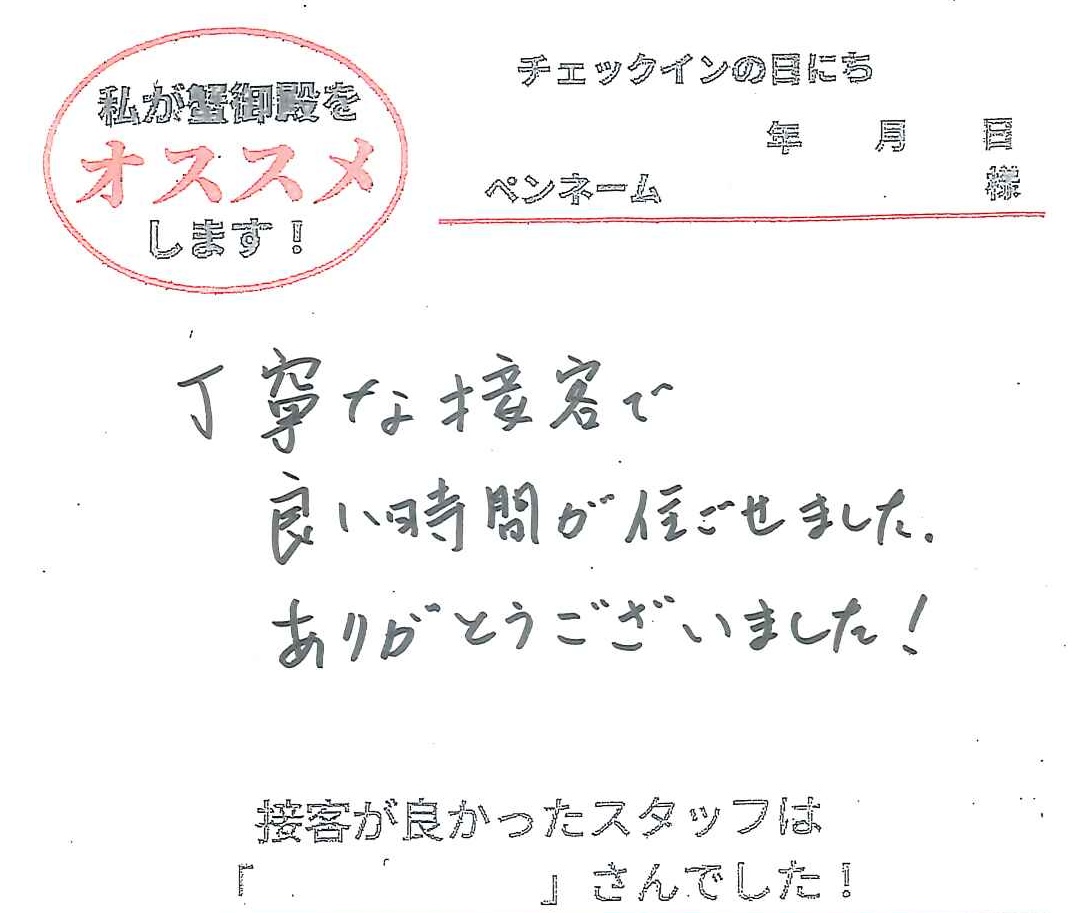 私が蟹御殿を
オススメ
します！
チェックインの日にち
年 月 日
ペンネーム 様
丁寧な接客で
良い時間が住ごせました.
ありがとうございました！
接客が良かったスタッフは
「 」さんでした！